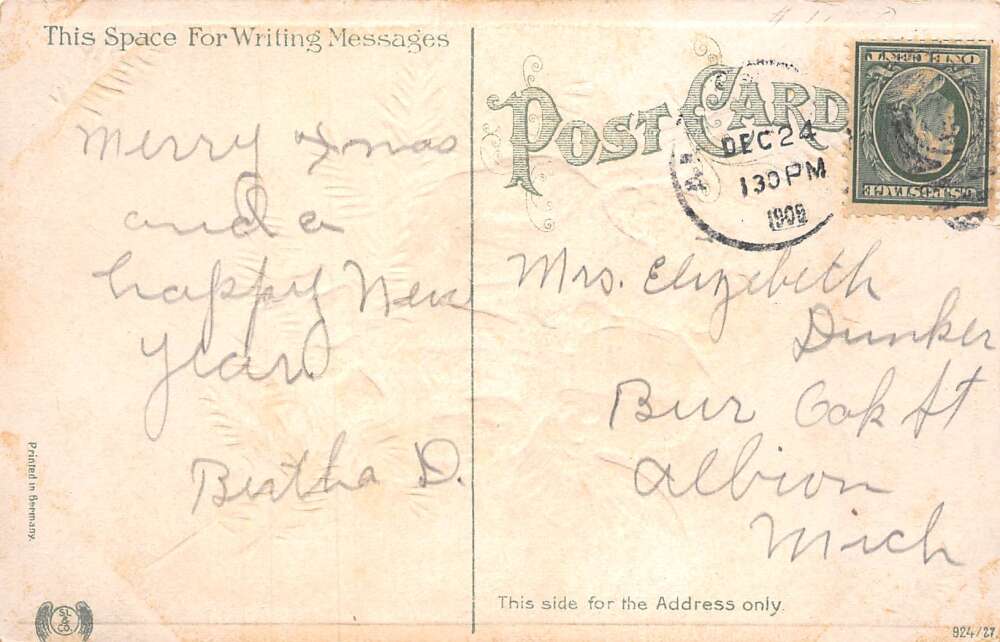 This Space For Writing Messages
Merry Xmas
and a
happy New
Year.
Bertha D.
Printed in Germany.
S.L.
&
CO.
POST CARD
DEC 24
1 30 PM
1909
ONE CENT
U.S. POSTAGE
Mrs. Elizebeth
Dunker
Bur Oak St
Albion
Mich
This side for the Address only.
924/27